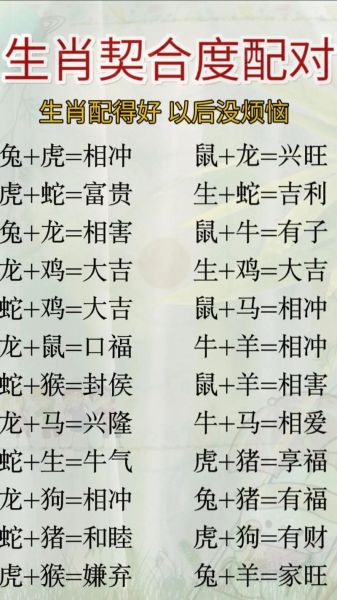 生肖契合度配对
生肖配得好 以后没烦恼
兔+虎=相冲 鼠+龙=兴旺
虎+蛇=富贵 生+蛇=吉利
兔+龙=相害 鼠+牛=有子
龙+鸡=大吉 生+鸡=大吉
蛇+鸡=大吉 鼠+马=相冲
龙+鼠=口福 牛+羊=相冲
蛇+猴=封侯 鼠+羊=相害
龙+马=兴隆 牛+马=相爱
蛇+生=牛气 虎+猪=享福
龙+狗=相冲 兔+猪=有福
蛇+猪=和睦 虎+狗=有财
虎+猴=嫌弃 兔+羊=家旺